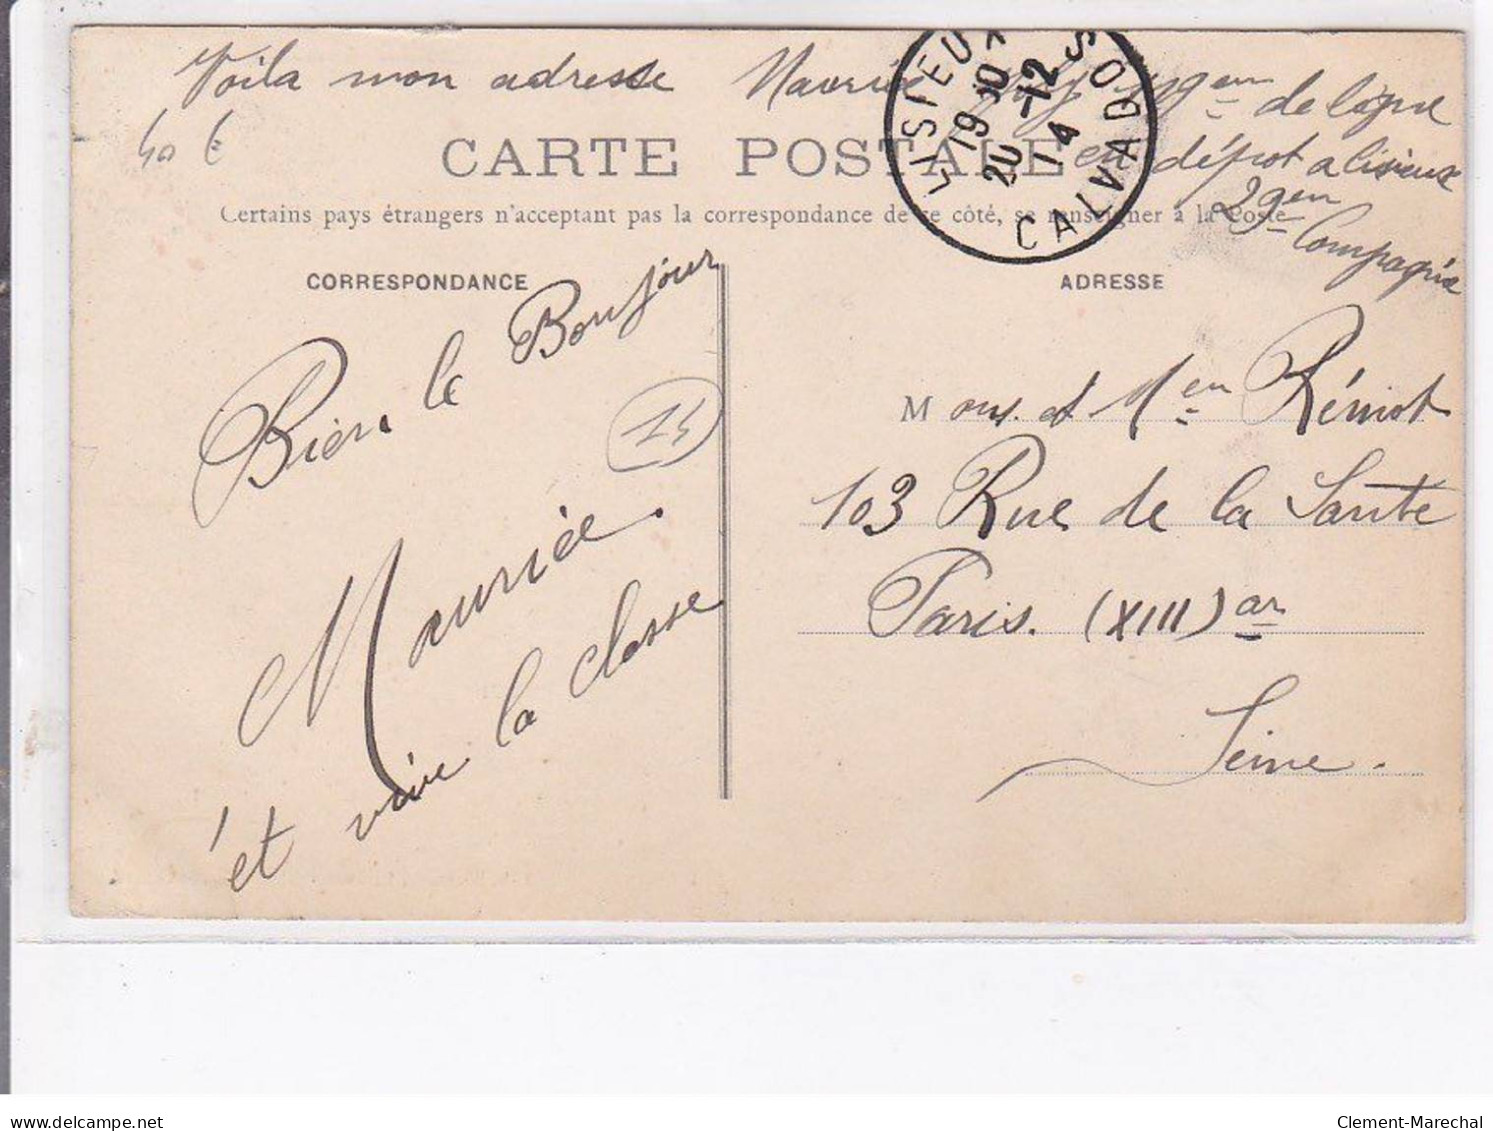 Voila mon adresse Maurice 119em de ligne
en dépot a lisieux
29em Compagnie
40 €
CARTE POSTALE
Certains pays étrangers n'acceptant pas la correspondance de ce côté, se renseigner à la Poste
LISIEUX
19 30
20 -12
14
CALVADOS
CORRESPONDANCE
ADRESSE
Bien le Bonjour
14
Maurice.
et vive la classe
Mons. et Men Rémiot
103 Rue de la Sante
Paris. (XIII) ar
Seine.
delcampe.net
Clement-Marechal